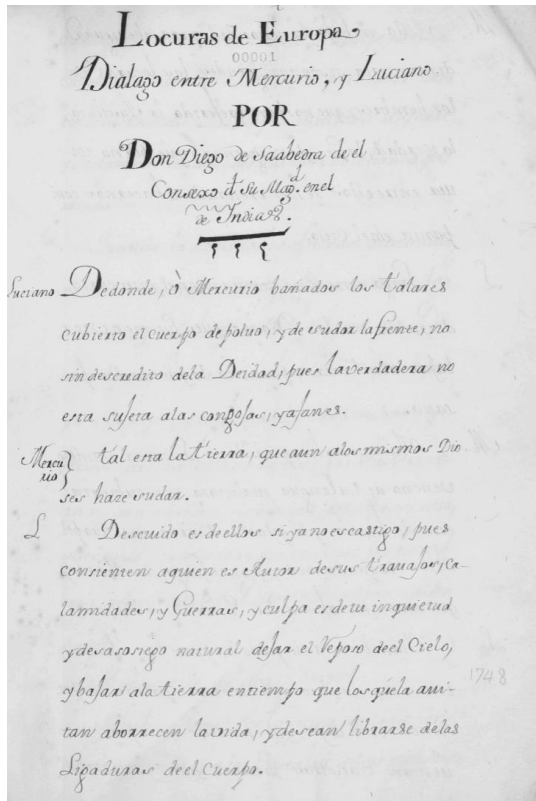 Locuras de Europa
00001
Dialago entre Mercurio, y Luciano.
POR
Don Diego de Saabedra de él
Consexo d.l Su Mag.d en el
de Indias.
Luciano Dedonde, ò Mercurio bañados los talares
cubierto el cuerpo de polvo, y de sudor la frente, no
sin descredito dela Deidad, pues la verdadera no
esta sujeta alas congojas, y afanes.
Mercurio tal esta la tierra, que aun alos mismos Dio
ses haze sudar.
L Descuido es de ellos si ya no es castigo, pues
consienten aquien es Autor de sus travajos, ca-
lamidades, y Guerras, y culpa es de tu inquietud
y desasosiego natural dejar el Reposo de el Cielo,
y bajar ala tierra en tiempo que los q.e la avi-
tan aborrecen la vida, y desean librarse de las
Ligaduras de el Cuerpo.
1748